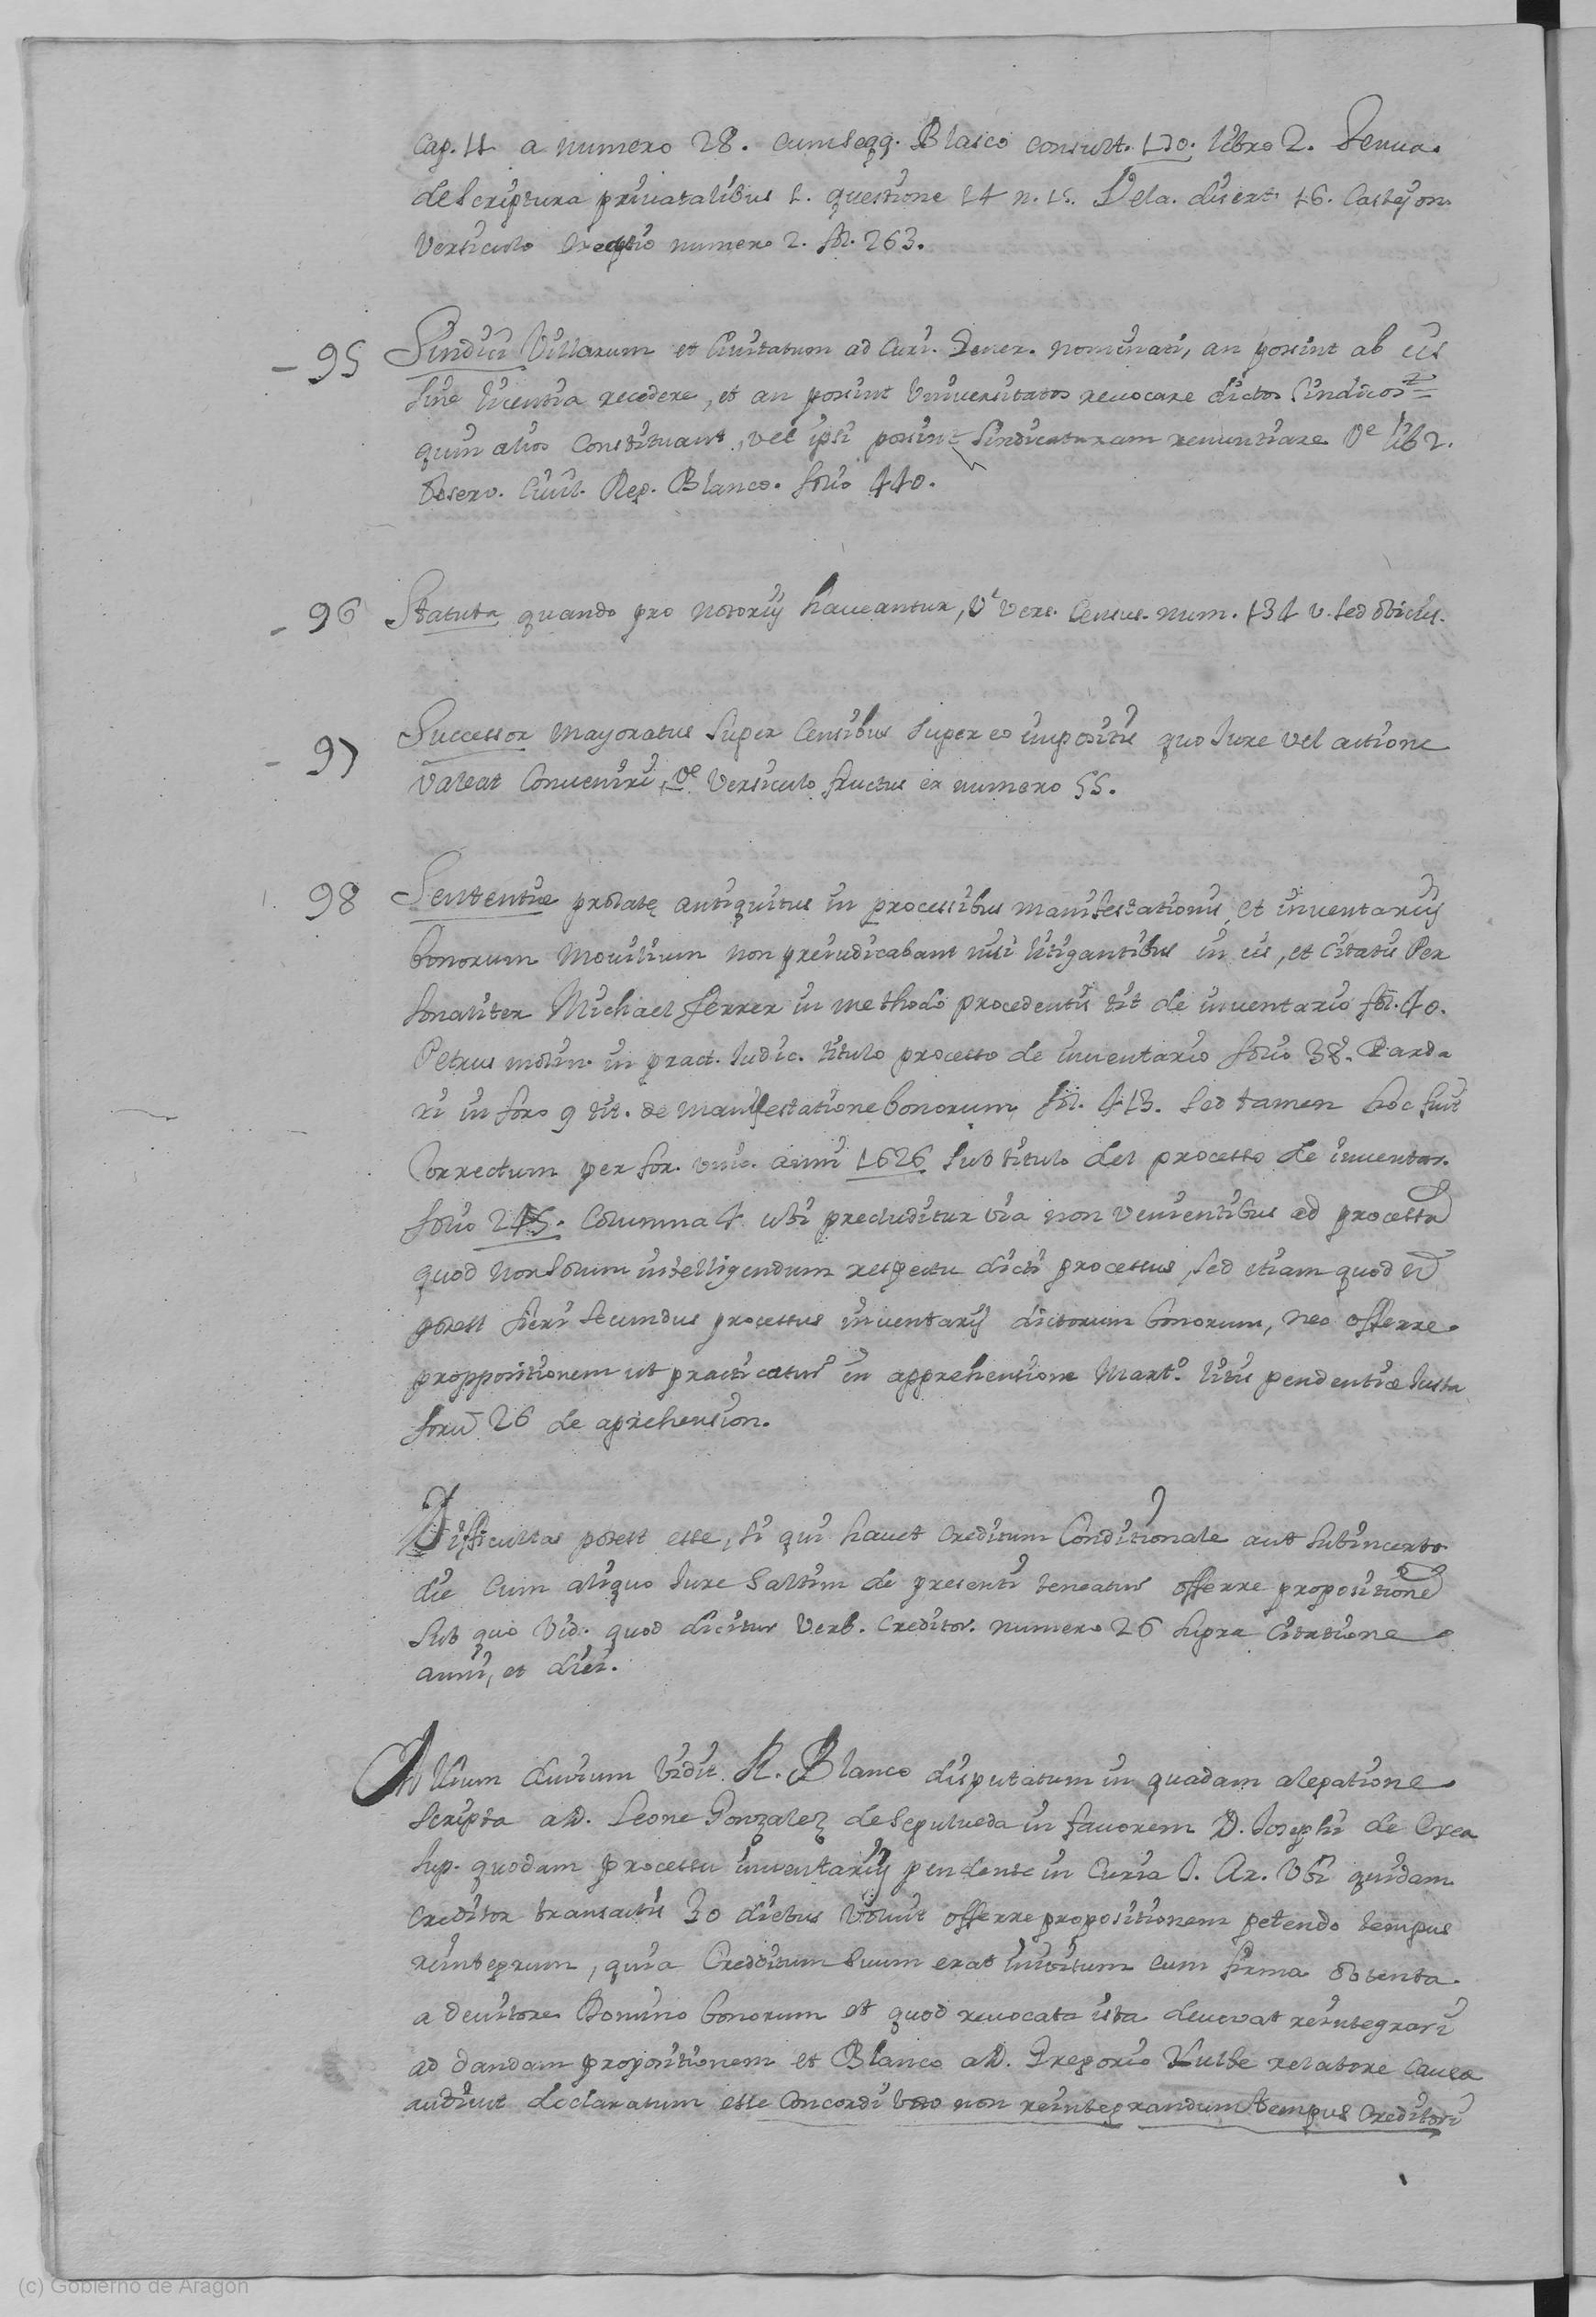 Cap. 11 a numero 28. cum seqq. Blasco consult. 170. libro 2. Genua.
de scriptura privata libus 1. questione 14 n. 15. Vela. disert. 46. Casteyon.
Versiculo numero 2. fol. 263.
- 95 Sindici Villarum et Civitatum ad Curi. Gener. nominati, an possint ab iis
sine licentia recedere, et an possint Universitates revocare dictos sindicos
quin alios constituant, vel ipsi possint sindicaturam renuntiare Ve lib 2.
observ. Civil. Rep. Blanco. folio 440.
- 96 Statuta quando pro notorijs haveantur, Ve vers. Census. num. 134 v. sed obicies.
- 97 Successor mayoratus super Censibus super eo impositis quo Iure vel actione
valeat Conveniri, Ve Versiculo fructus ex numero 55.
98 Sententiæ prolatę antiquitus in processibus manifestationis, et inventarij
bonorum movilium non preiudicabant nisi litigantibus in eis, et citatis Per
sonaliter Michael Ferrer in methodo procedentis tit de inventario fol. 40.
Petrus molin. in pract. Iudic. titulo processo de inventario folio 38. Parda
xi in foro 9 tit. de manifestatione bonorum fol. 413. sed tamen hoc fuit
Correctum per for. unic. anni 1626 sub titulo del processo de inventar.
folio 245. Columna 4. ubi precluditur via non venientibus ad processũ
quod non solum intelligendum respectu dicti processus, sed etiam quod
potest fieri secundus processus inventarij dictorum bonorum, nec offerre
proppositionem ut practicatur in apprehensione Mart.o litis pendentiæ Iusta
forũ 26 de aprehension.
Difficultas potest esse, si qui havet creditum Conditionale aut sub incerto
die Cum aliquo Iure saltim de presenti teneatur offerre propositionẽ
sub quo Vid. quod dicitur Verb. Creditor. numero 26 supra Citatione
anni, et diei.
Allium duvium Vidit R. Blanco disputatum in quadam alegatione
scripta a D. Leone Gonzalez de Sepulveda in favorem D. Iosephi de Exea
sup. quodam processu inventarij pendente in Curia I. Ar. Ubi quidam
creditor transactis 30 diebus voluit offerre propositionem petendo tempus
reintegrum, quia Creditum suum erat inivitum cum firma obtenta
a devitore Domino bonorum et quod revocata ista deverat reintegrari
ad dandam propositionem et Blanco a D. Gregorio Xulbe relatore causa
audivit declaratum esse Concordi voto non reintegrandum tempus Creditori
(c) Gobierno de Aragón